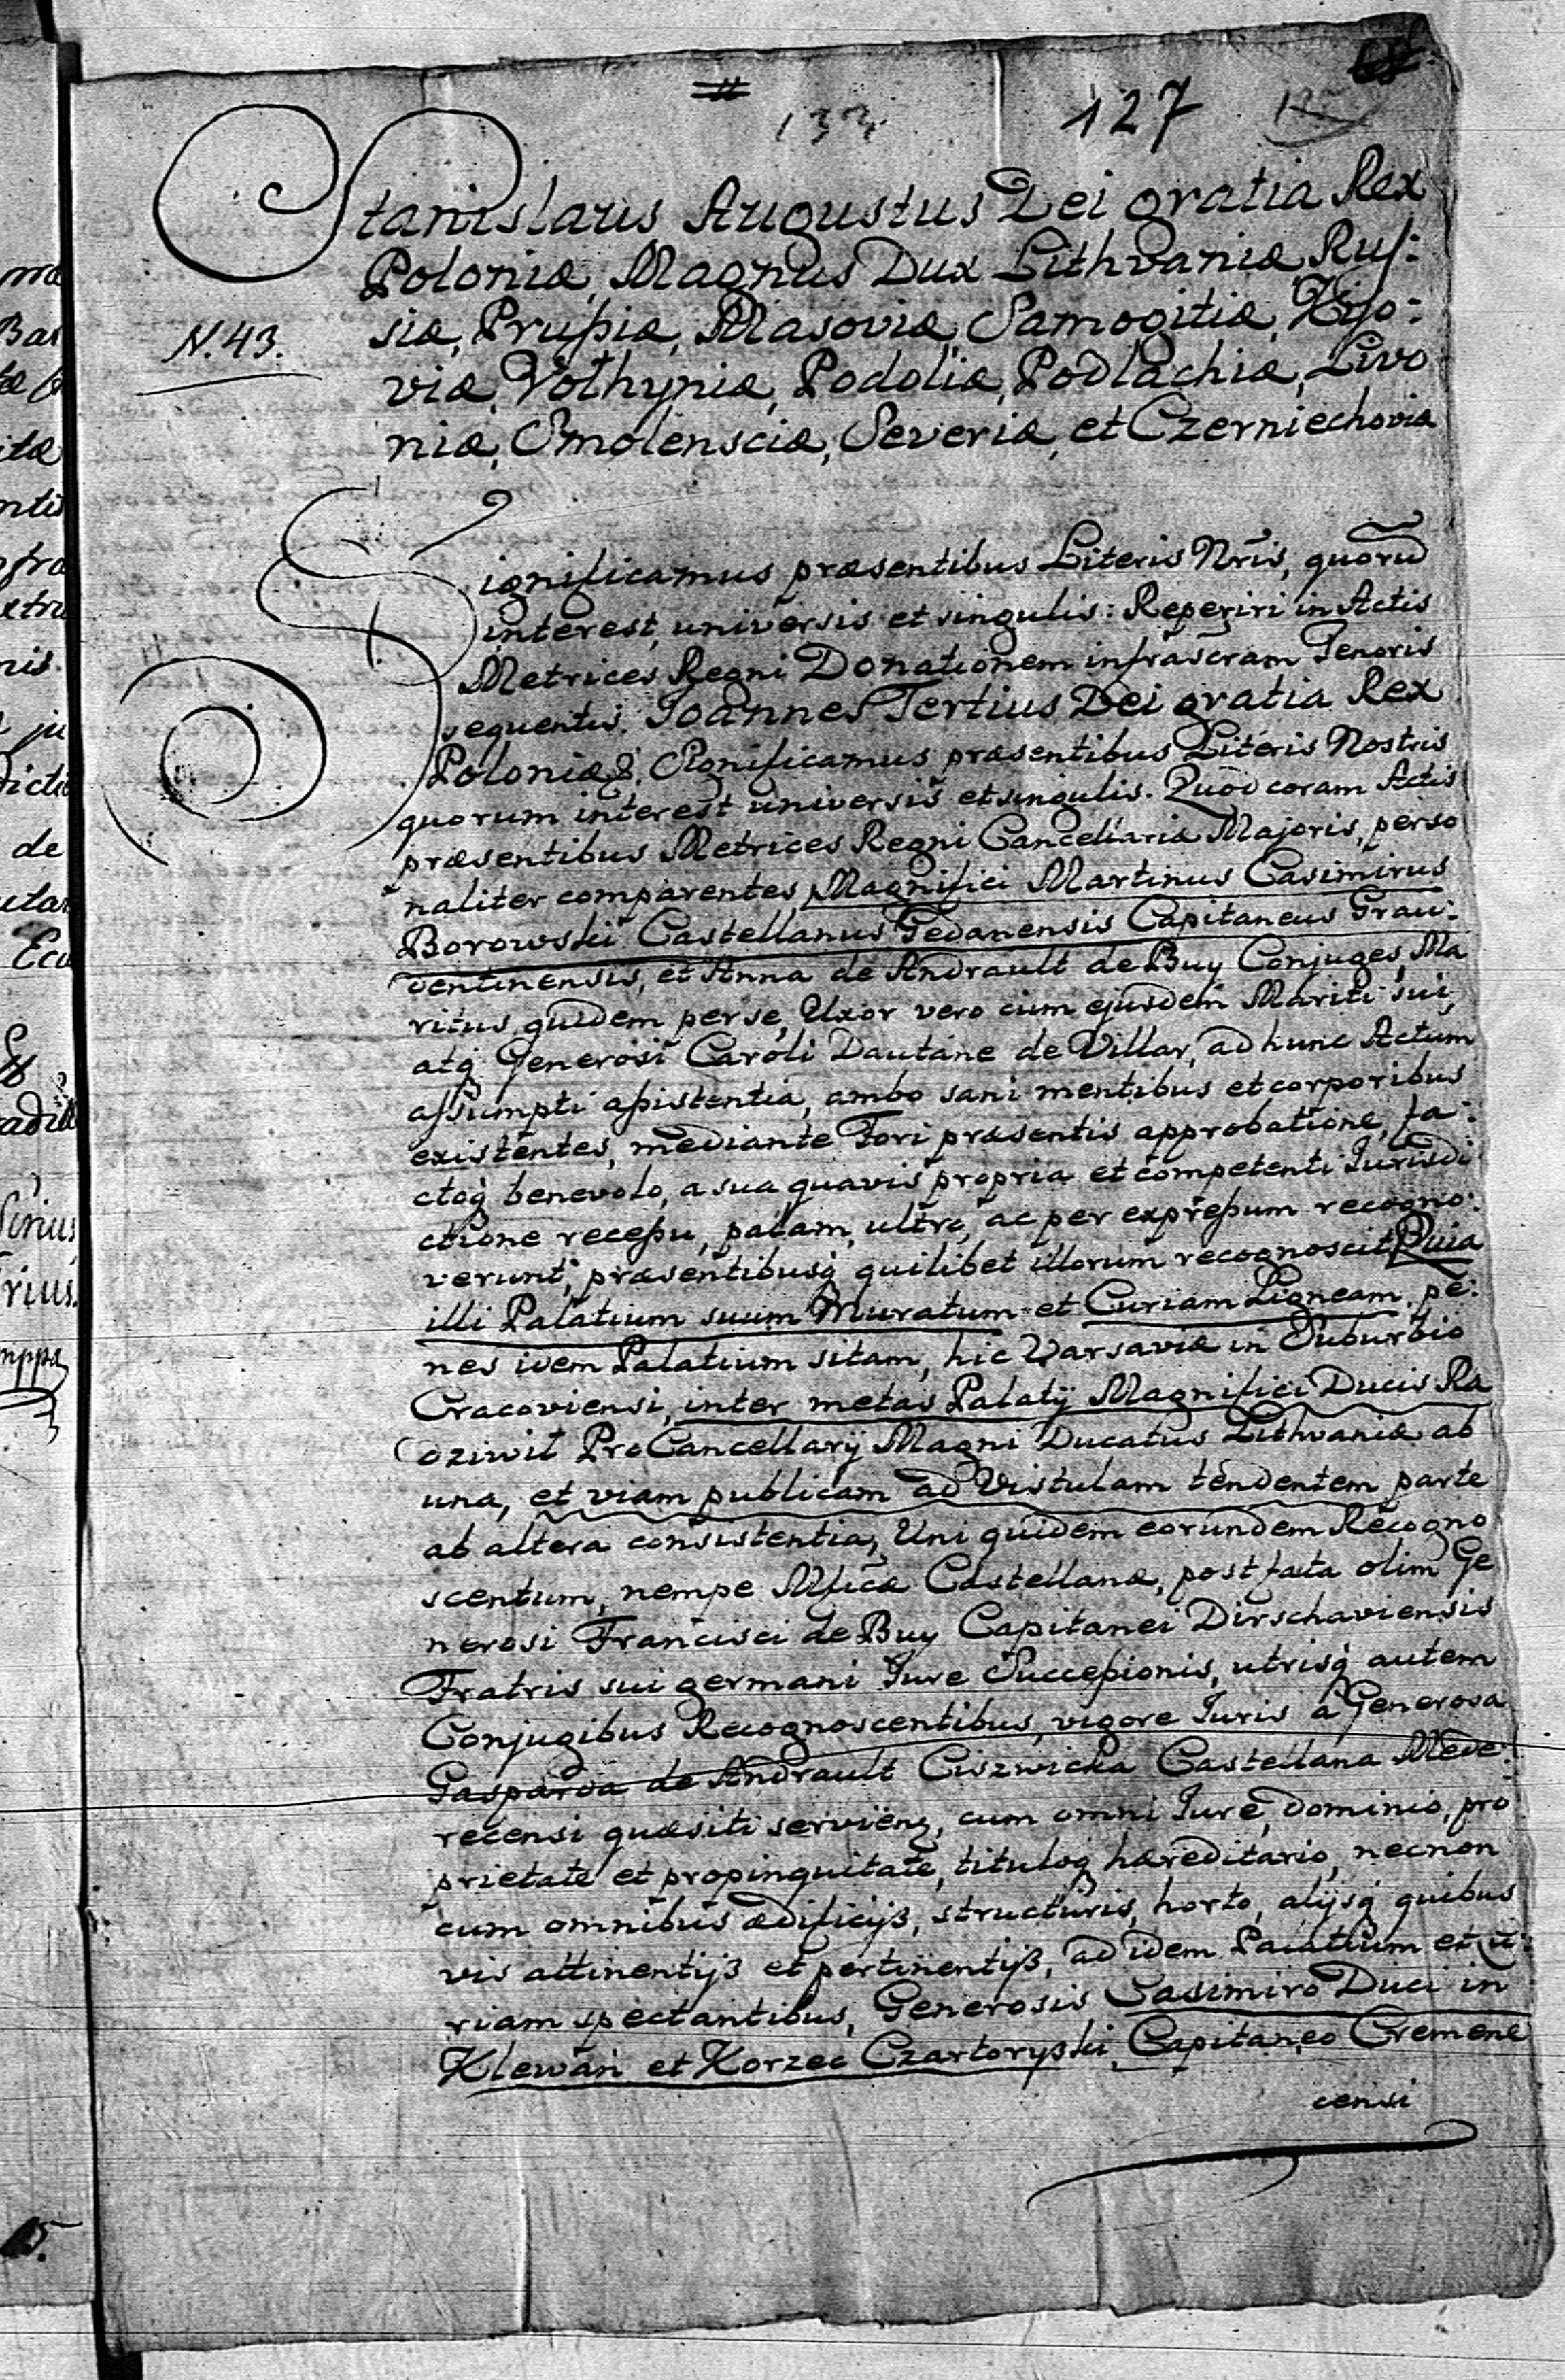 133 127
Stanislaus Augustus Dei gratia Rex
Poloniæ, Magnus Dux Lithvaniæ Rus:
N. 43.
siæ, Prußiæ, Masoviæ, Samogitiæ, Kijo:
viæ, Volhyniæ, Podoliæ, Podlachiæ, Livo
niæ, Smolensciæ, Severiæ, et Czerniechoviæ
Significamus præsentibus Literis Nris, quorũ
interest, universis et singulis: Reperiri in Actis
Metrices Regni Donationem infrascram Tenoris
sequentis. Joannes Tertius Dei gratia Rex
Poloniæ &. Significamus præsentibus Literis Nostris
quorum interest universis et singulis. Quod coram Actis
præsentibus Metrices Regni Cancellariæ Majoris, perso
naliter comparentes Magnifici Martinus Casimirus
Borowski Castellanus Gedanensis Capitaneus Grau:
dentinensis, et Anna de Andrault de Buy Conjuges, Ma
ritus quidem per se, Uxor vero cum ejusdem Mariti sui,
atq Generosi Caroli Dautane de Villar, ad hunc Actum
assumpti aßistentia, ambo sani mentibus et corporibus
existentes, mediante Fori præsentis approbatione, fa:
ctoq benevolo, a sua quavis propria et competenti Jurisdi
ctione receßu, palam, ultro, ac per expreßum recogno:
verunt, præsentibusq quilibet illorum recognoscit. Quia
illi Palatium suum Muratum et Curiam Ligneam, pe:
nes idem Palatium sitam, hic Varsaviæ in Suburbio
Cracoviensi, inter metas Palatij Magnifici Ducis Ra
dziwil ProCancellarij Magni Ducatus Lithvaniæ ab
una, et viam publicam ad Vistulam tendentem parte
ab altera consistentia, Uni quidem eorundem Recogno
scentum, nempe Mficæ Castellanæ, post fata olim Ge
nerosi Francisci de Buy Capitanei Dirschaviensis
Fratris sui germani Jure Succeßionis, utrisq autem
Conjugibus Recognoscentibus, vigore Juris a Generosa
Gasparda de Andrault Ciszwicka Castellana Mede:
recensi quæsiti servienẽ, cum omni Jure, dominio, pro
prietate et propinquitate, tituloq hæreditario, necnon
cum omnibus ædificijß, structuris, horto, alijsq quibus
vis attinentijß et pertinentijß, ad idem Palatium et Cu:
riam spectantibus, Generosis Casimiro Duci in
Klewan et Korzec Czartoryski Capitaneo Cremene
censi